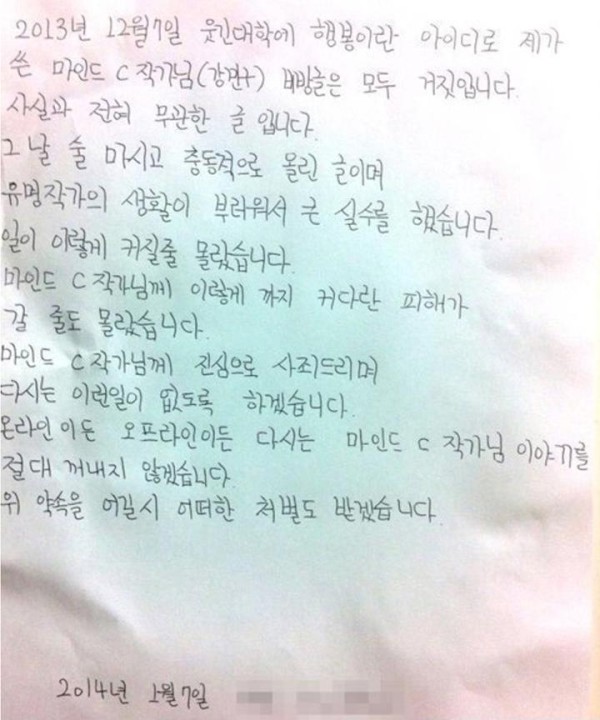 2013년 12월7일 웃긴대학에 행봉이란 아이디로 제가
쓴 마인드 C 작가님(강민구) 비방글은 모두 거짓입니다.
사실과 전혀 무관한 글 입니다.
그 날 술 마시고 충동적으로 올린 글이며
유명작가의 생활이 부러워서 큰 실수를 했습니다.
일이 이렇게 커질줄 몰랐습니다.
마인드 C 작가님께 이렇게 까지 커다란 피해가
갈 줄도 몰랐습니다.
마인드 C 작가님께 진심으로 사죄드리며
다시는 이런일이 없도록 하겠습니다.
온라인이든 오프라인이든 다시는 마인드 C 작가님 이야기를
절대 꺼내지 않겠습니다.
위 약속을 어길시 어떠한 처벌도 받겠습니다.
2014년 1월 7일